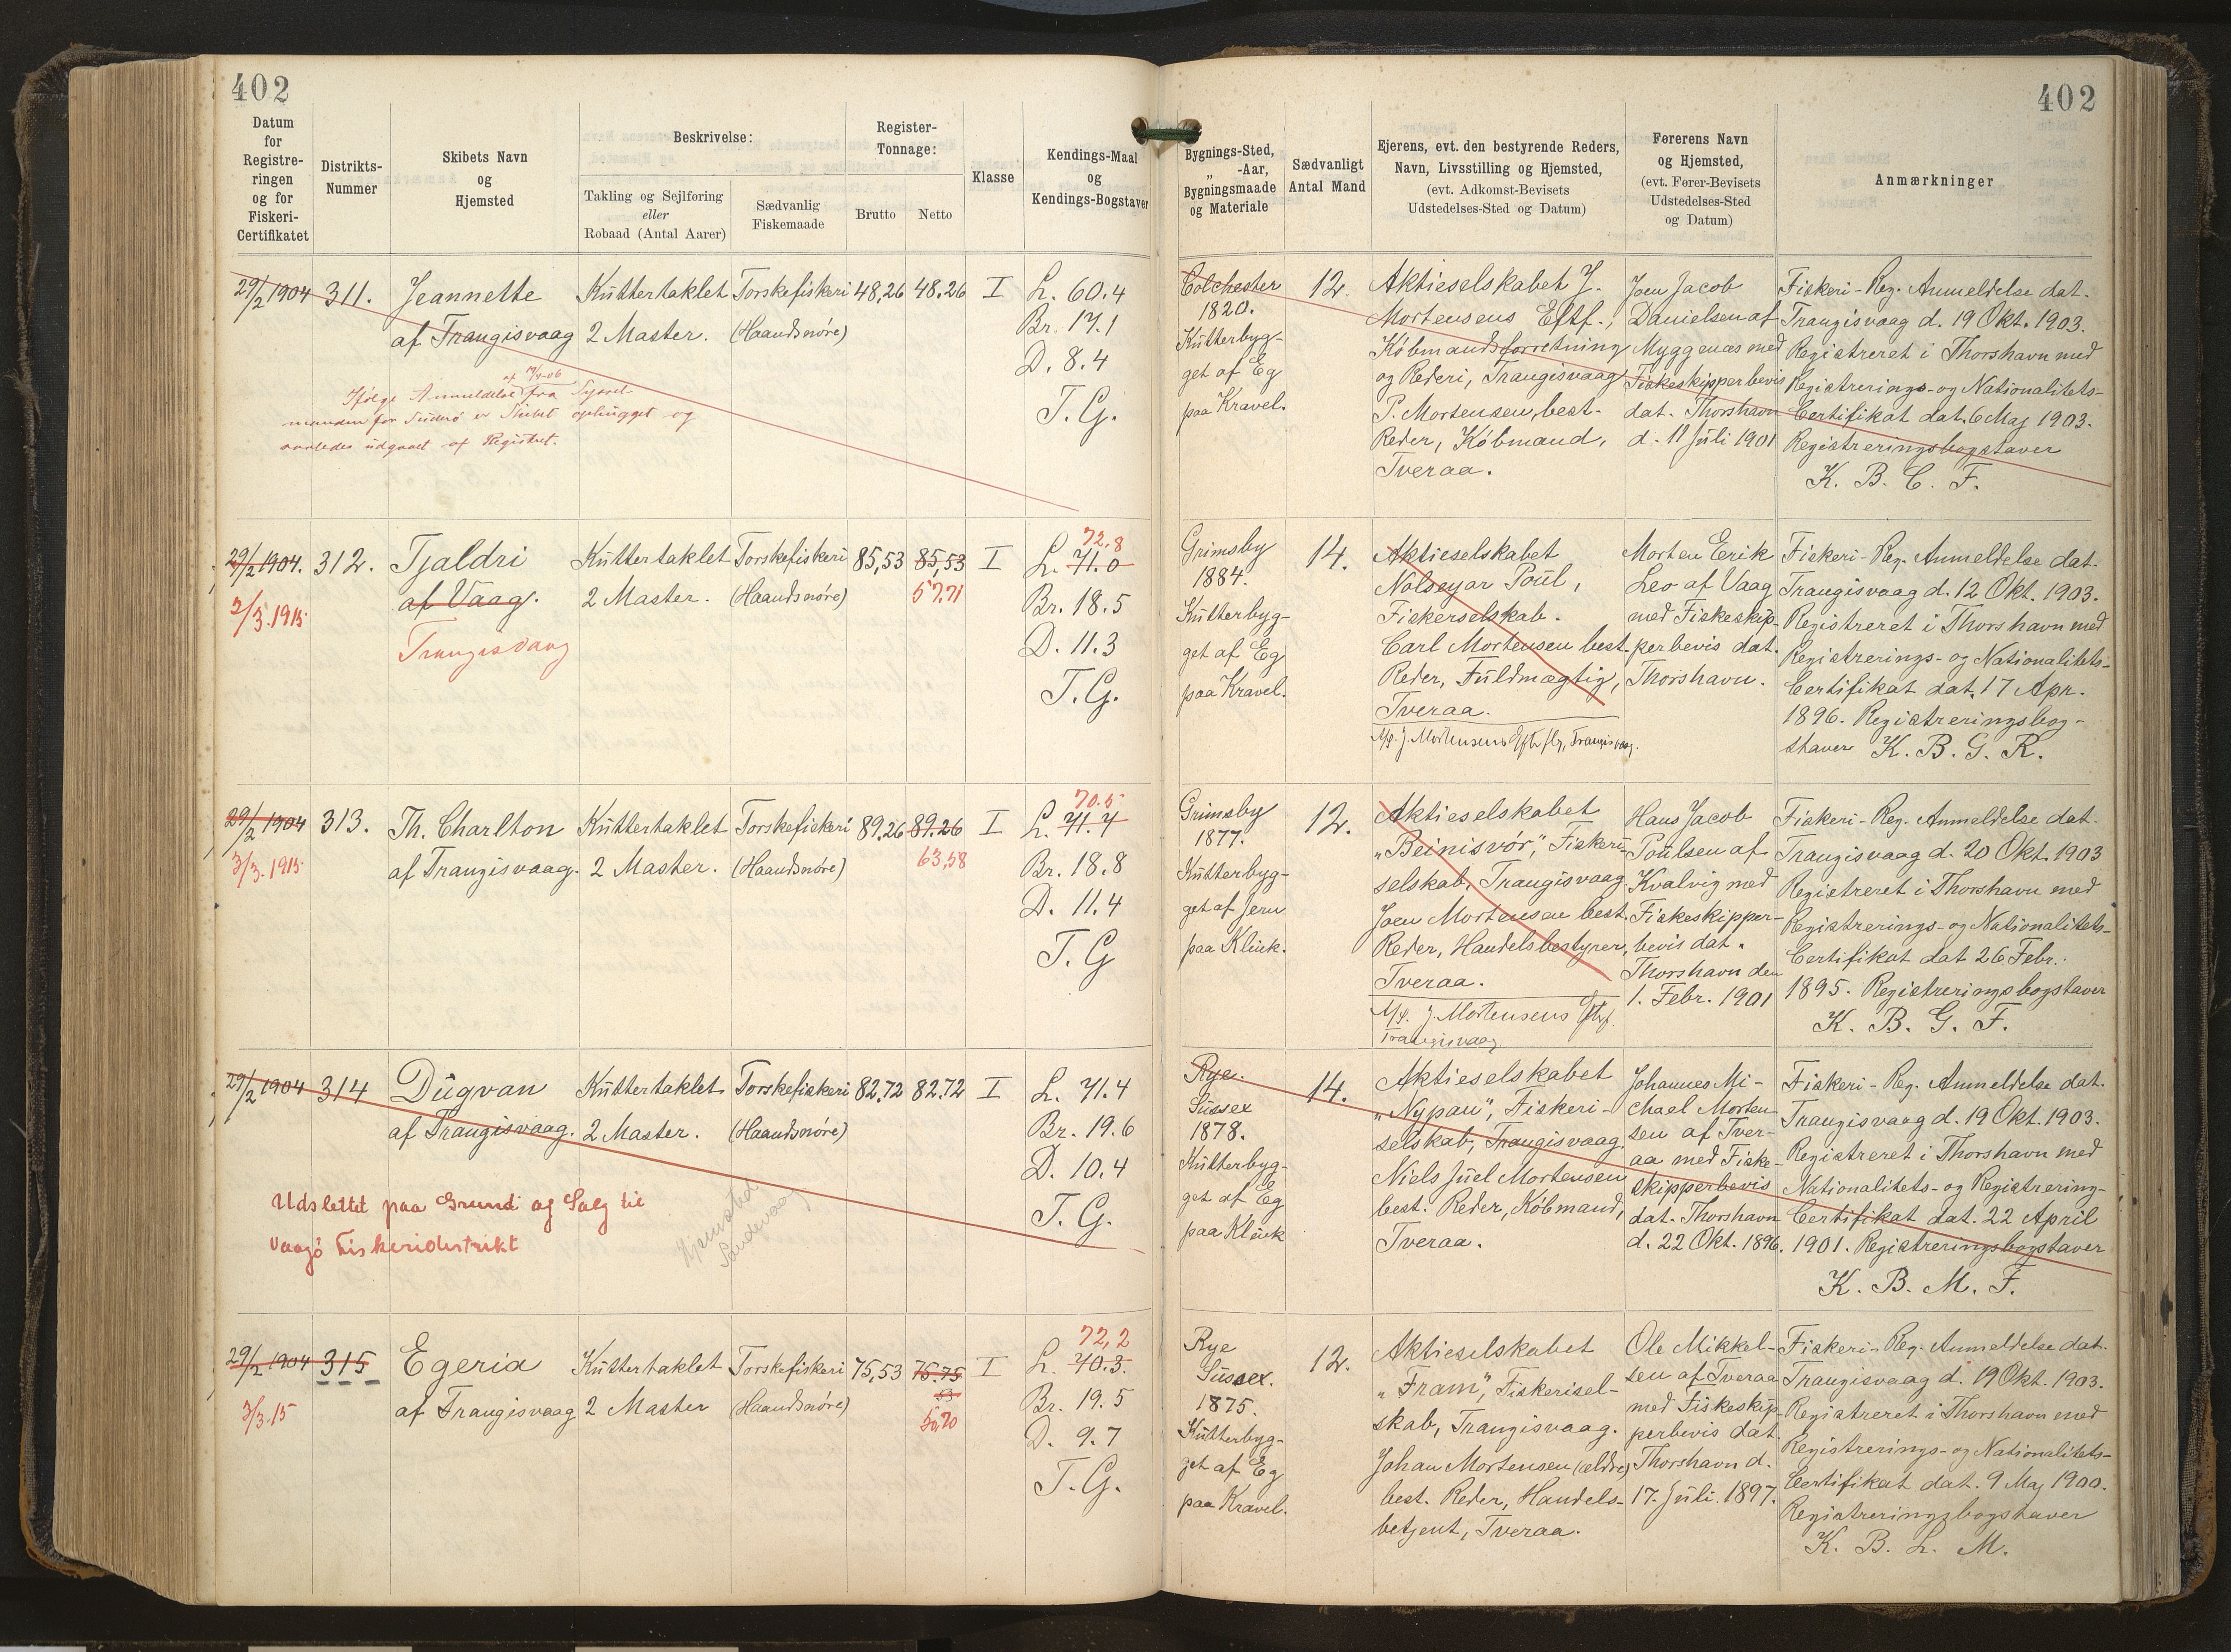 402
402
Datum
for
Registre-
ringen
og for
Fiskeri-
Certifikatet
Distrikts-
Nummer
Skibets Navn
og
Hjemsted
Beskrivelse:
Takling og Sejlføring
eller
Robaad (Antal Aarer)
Sædvanlig
Fiskemaade
Register-
Tonnage:
Brutto
Netto
Klasse
Kendings-Maal
og
Kendings-Bogstaver
Bygnings-Sted,
„ -Aar,
Bygningsmaade
og Materiale
Sædvanligt
Antal Mand
Ejerens, evt. den bestyrende Reders,
Navn, Livsstilling og Hjemsted,
(evt. Adkomst-Bevisets
Udstedelses-Sted og Datum)
Førerens Navn
og Hjemsted,
(evt. Fører-Bevisets
Udstedelses-Sted
og Datum)
Anmærkninger
29/2 1904
311.
Jeannette
af Trangisvaag
Kuttertaklet
2 Master.
Torskefiskeri
(Haandsnøre)
48,26
48.26
I
L. 60.4
Br. 17.1
D. 8.4
T.G.
Ifølge Anmeldelse af fra Syssel-
manden for Suderø er Skibet ophugget og
saaledes udgaaet af Registret.
Colchester
1820.
Kutterbyg-
get af Eg
paa Kravel.
12.
Aktieselskabet J.
Mortensens Eftf.,
Købmandsforretning
og Rederi, Trangisvaag
P. Mortensen, best.
Reder, Købmand,
Tveraa.
Joen Jacob
Danielsen af
Myggenæs med
Fiskeskipperbevis
dat. Thorshavn
d. 11 Juli 1901
Fiskeri-Reg. Anmeldelse dat.
Trangisvaag d. 19 Okt. 1903.
Registreret i Thorshavn med
Registrerings- og Nationalitets-
Certifikat dat. 6 Maj 1903.
Registreringsbogstaver
K. B. C. F.
29/2 1904.
3/3.1915.
312.
Tjaldri
af Vaag.
Trangisvaag
Kuttertaklet
2 Master.
Torskefiskeri
(Haandsnøre)
85,53
85,53
57,71
I
72,8
L. 71.0
Br. 18.5
D. 11.3
T.G.
Grimsby
1884.
Kutterbyg-
get af Eg
paa Kravel.
14.
Aktieselskabet
Nolseyar Poul,
Fiskerselskab.
Carl Mortensen best.
Reder, Fuldmægtig,
Tveraa.
A/S. J. Mortensens Eftflg, Trangisvaag.
Morten Eerik
Leo af Vaag
med Fiskeskip-
perbevis dat.
Thorshavn.
Fiskeri-Reg. Anmeldelse dat.
Trangisvaag d. 12 Okt. 1903.
Registreret i Thorshavn med
Registrerings- og Nationalitets-
Certifikat dat. 17 Apr.
1896. Registreringsbog-
staver K. B. G. R.
29/2 1904
3/3.1915
313.
Th. Charlton
af Trangisvaag.
Kuttertaklet
2 Master.
Torskefiskeri
(Haandsnøre)
89.26
89.26
63,58
I
70.5
L. 71.7
Br. 18.8
D. 11.4
T.G
Grimsby
1877.
Kutterbyg-
get af Jern
paa Klink.
12.
Aktieselskabet
„Beinisvór", Fiskeri-
selskab, Trangisvaag
Joen Mortensen best.
Reder, Handelsbestyrer,
Tveraa.
A/S. J. Mortensens Eftf.
Trangisvaag
Hans Jacob
Poulsen af
Kvalvig med
Fiskeskipper-
bevis dat.
Thorshavn den
1. Febr. 1901
Fiskeri-Reg. Anmeldelse dat.
Trangisvaag d. 20 Okt. 1903
Registreret i Thorshavn med
Registrerings- og Nationalitets-
Certifikat dat 26 Febr.
1895. Registreringsbogstaver
K. B. G. F.
29/2 1904
314
Dugvan
af Trangisvaag.
Kuttertaklet
2 Master.
Torskefiskeri
(Haandsnøre)
82.72
82.72
I
L. 71.4
Br. 19.6
D. 10.4
T.G.
Udslettet paa Grund af Salg til
Vaagø Fiskeridistrikt
Hjemsted
Sandevaag
Rye.
Sussex
1878.
Kutterbyg-
get af Eg
paa Klink
14.
Aktieselskabet
„Nypan", Fiskeri-
selskab, Trangisvaag.
Niels Juel Mortensen
best. Reder, Købmand,
Tveraa.
Johannes Mi-
chael Morten-
sen af Tver-
aa med Fiske-
skipperbevis
dat. Thorshavn
d. 22 Okt. 1896.
Fiskeri-Reg. Anmeldelse dat.
Trangisvaag d. 19 Okt. 1903.
Registreret i Thorshavn med
Nationalitets- og Registrering-
Certifikat dat. 22 April
1901. Registreringsbogstaver
K. B. M. F.
29/2 1904
3/3.15
315
Egeria
af Trangisvaag
Kuttertaklet
2 Master
Torskefiskeri
(Haandsnøre)
75,53
75.75
53
50,70
I
72,2
L. 70.3.
Br. 19.5
D. 9.7
T.G.
Rye
Sussex.
1875.
Kutterbyg-
get af Eg
paa Kravel.
12.
Aktieselskabet
„Fram", Fiskerisel-
skab, Trangisvaag.
Johan Mortensen (ældre)
best. Reder, Handels-
betjent, Tveraa.
Ole Mikkel-
sen af Tveraa
med Fiskeskip-
perbevis dat.
Thorshavn d.
17. Juli 1897.
Fiskeri-Reg. Anmeldelse dat.
Trangisvaag d. 19 Okt. 1903.
Registreret i Thorshavn med
Registrerings- og Nationalitets-
Certifikat dat. 9 Maj 1900.
Registreringsbogstaver
K. B. L. M.